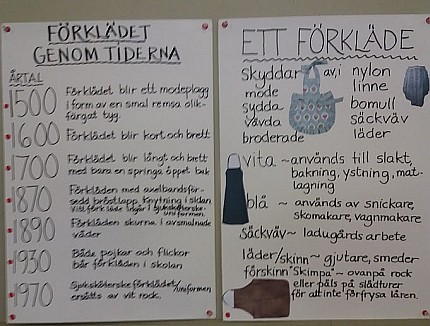 FÖRKLÄDET
GENOM TIDERNA
ÅRTAL
1500 Förklädet blir ett modeplagg
i form av en smal remsa olik-
färgat tyg.
1600 Förklädet blir kort och brett
1700 Förklädet blir långt och brett
med bara en springa öppet bak
1870 Förkläden med axelbandsför-
sedd bröstlapp. Knytning i sidan
Vitt förkläde ingår i sjuksköterske-
uniformen
1890 Förkläden skurna i avsmalnade
våder
1930 Både pojkar och flickor
bär förkläden i skolan
1970 Sjuksköterske förklädet/uniformen
ersätts av vit rock.
ETT FÖRKLÄDE
skyddar av, i nylon
mode linne
sydda bomull
vävda säckväv
broderade läder
vita ~ används till slakt,
bakning, ystning, mat-
lagning
blå ~ används av snickare,
skomakare, vagnmakare
säckväv ~ ladugårds arbete
läder/skinn ~ gjutare, smeder
förskinn "Skimpa" ~ ovanpå rock
eller päls på slädturer
för att inte förfrysa låren.